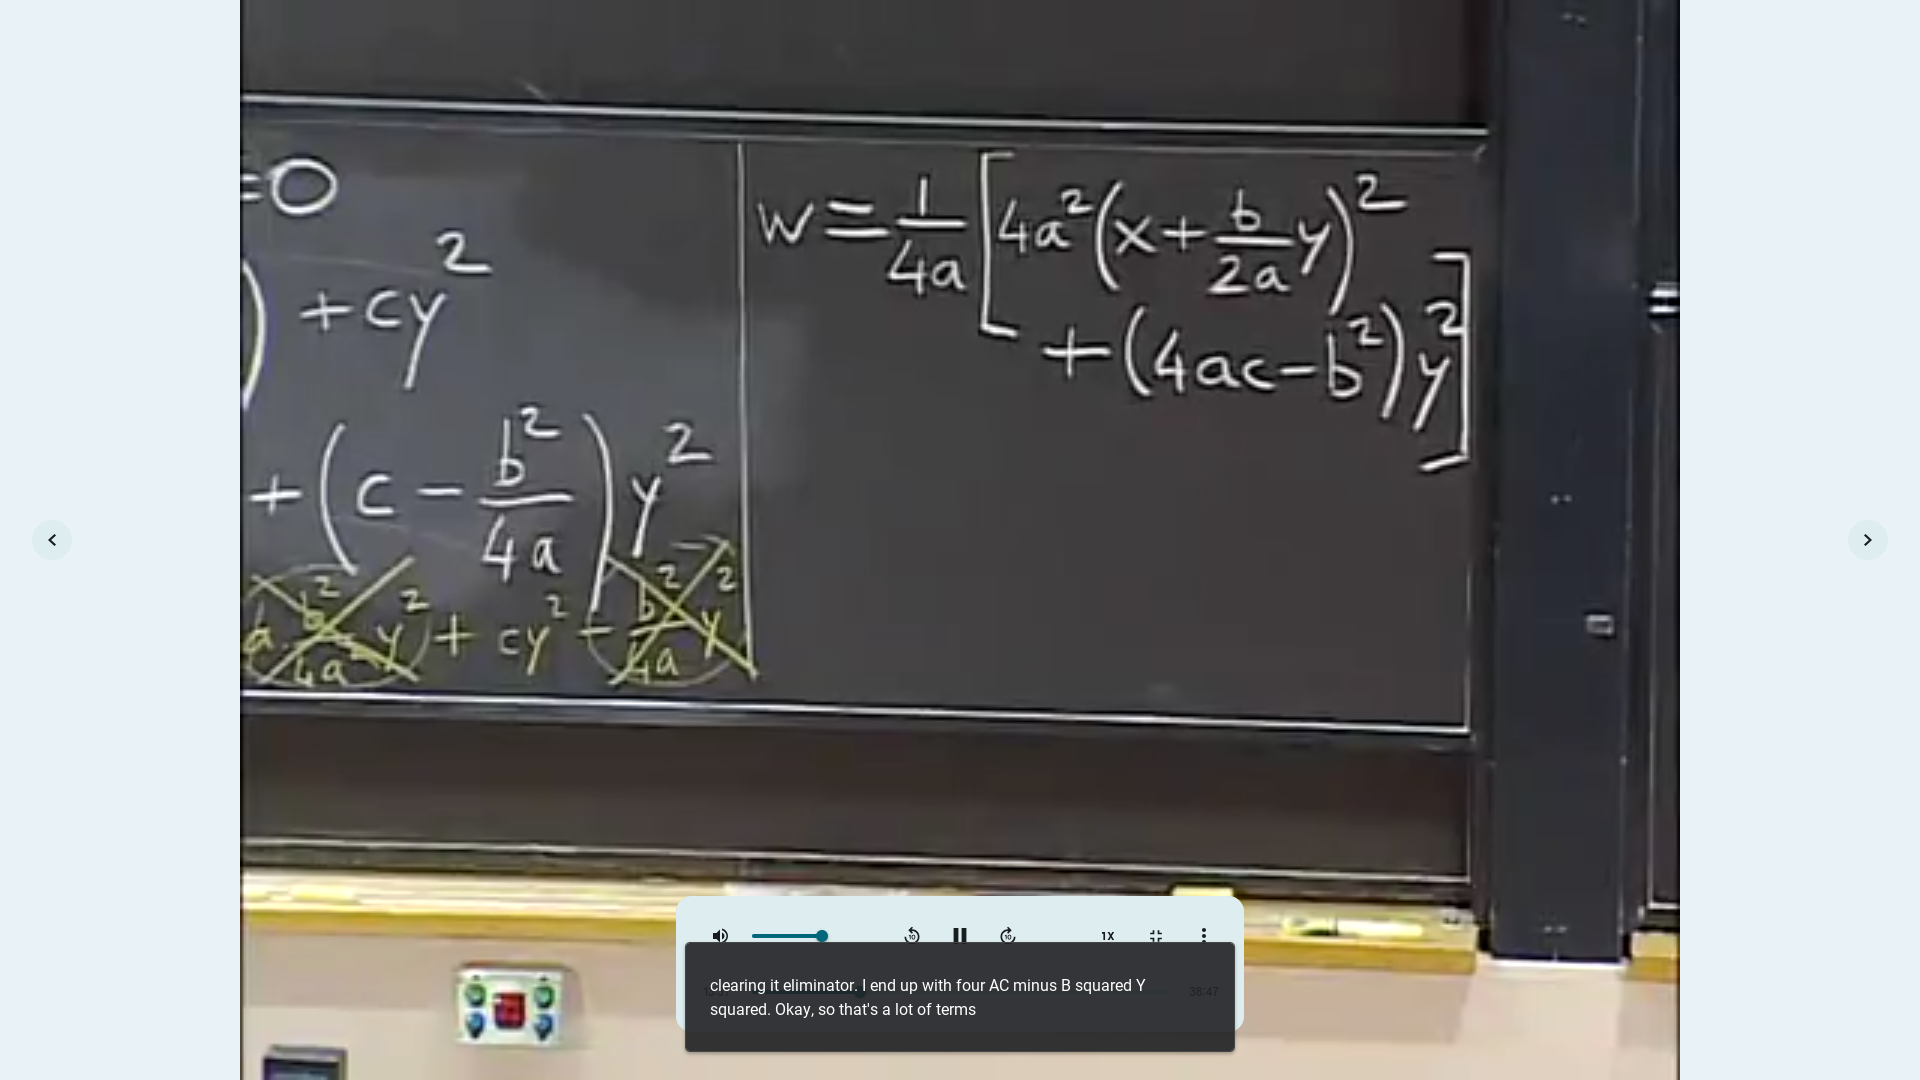 =0
) + cy²
+ (c - b²/4a) y²
a · b²/4a² y² + cy² - b²/4a y²
w = 1/4a [4a² (x + b/2a y)²
+ (4ac - b²) y²]
1X
38:47
clearing it eliminator. I end up with four AC minus B squared Y
squared. Okay, so that's a lot of terms